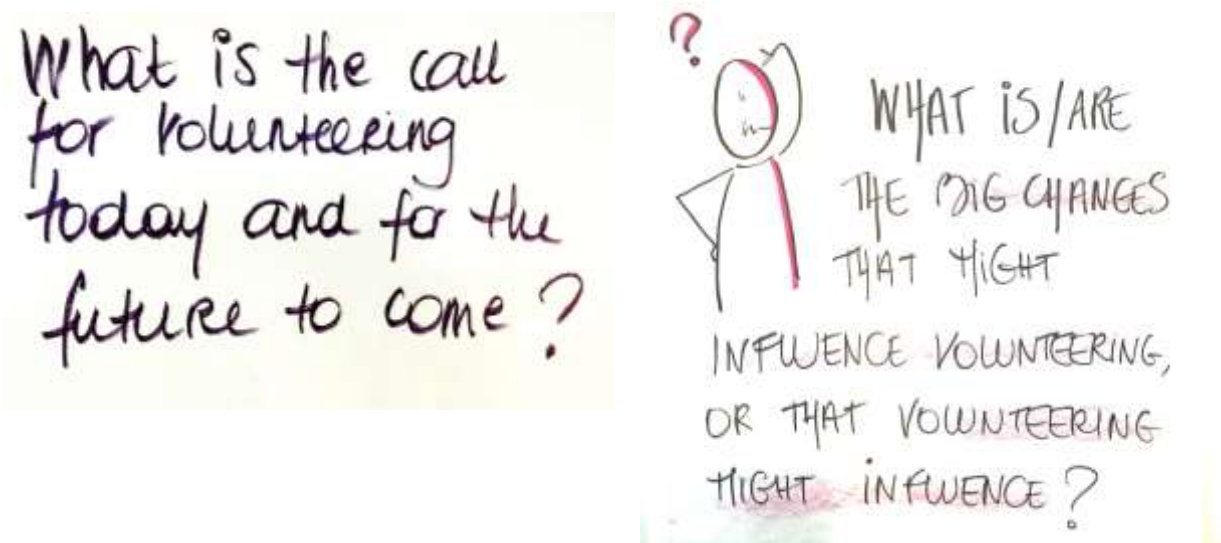 What is the call
for volunteering
today and for the
future to come?
?
WHAT IS/ARE
THE BIG CHANGES
THAT MIGHT
INFLUENCE VOLUNTEERING,
OR THAT VOLUNTEERING
MIGHT INFLUENCE?